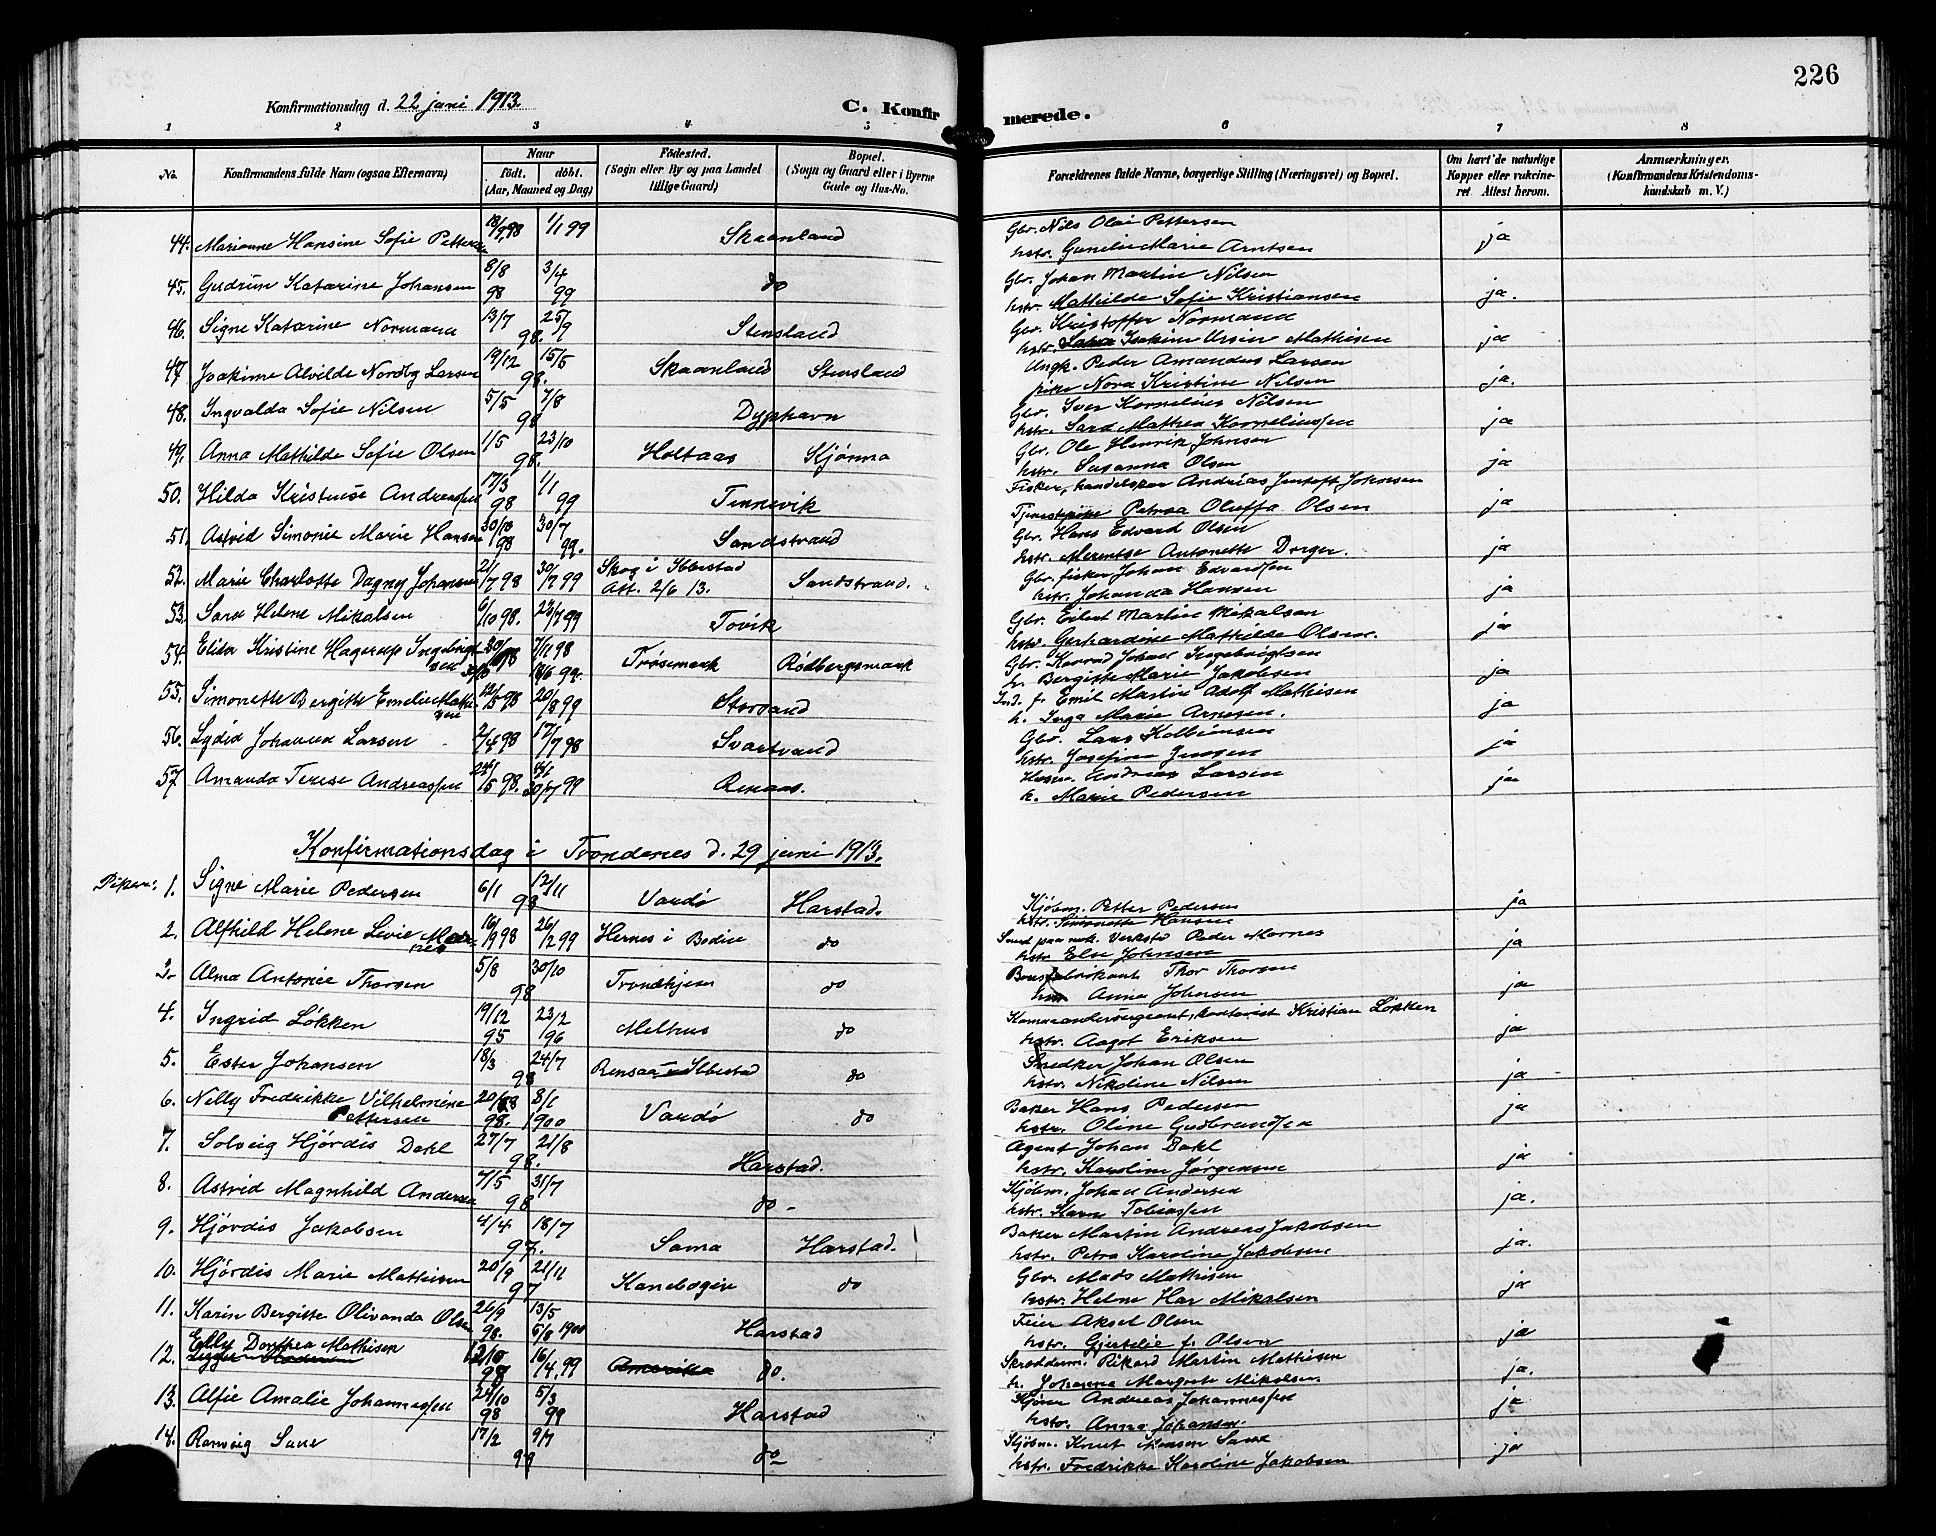 226
Konfirmationsdag d. 22 juni 1913.
C. Konfirmerede.
1 2 3 4 5 6 7 8
No. Konfirmandens fulde Navn (ogsaa Efternavn) Naar født. døbt. (Aar, Maaned og Dag) Fødested. (Sogn eller By og paa Landet tillige Gaard) Bopæl. (Sogn og Gaard eller i Byerne Gade og Hus-No. Forældrenes fulde Navne, borgerlige Stilling (Næringsvei) og Bopæl. Om havt de naturlige Kopper eller vakcineret Attest herom. Anmærkninger. (Konfirmandens Kristendomskundskab m. V.)
44. Marianne Hansine Sofie Pettersen 98 1/1 99 Skaanland Gbr. Nils Olai Pettersen ja
hstr. Gunelie Marie Arntsen
45. Gudrun Katarine Johansen 8/8 98 3/4 99 do Gbr. Johan Martin Nilsen ja.
hstr. Mathilde Sofie Kristiansen
46. Signe Katarine Normann 13/7 25/9 98. Stensland Gbr. Kristoffer Normann ja
hstr. Joakim Ursin Mathisen
47 Joakime Alvilde Nordby Larsen 19/12 15/5 98. Skaanland Stensland Ungk. Peder Amandus Larsen ja.
pike Nora Kristine Nilsen
48. Ingvalda Sofie Nilsen 5/5 7/8 98 Dyphavn Gbr. Iver Kornelius Nilsen ja
hstr. Sara Mathea Korneliussen
49. Anna Mathilde Sofie Olsen 1/5 23/10 98. Holtaas Kjønna Gbr. Ole Henrik Johnsen ja
hstr. Susanna Olsen
50. Hilda Kristense Andreassen 17/3 98 1/1 99 Tennevik Fisker, handelskar Andreas Jentoft Johnsen ja
Tjenestpike Petrea Oluffa Olsen
51. Astrid Simonie Marie Hansen 30/10 98 30/7 99. Sandstrand Gbr. Hans Edvard Olsen ja
hstr. Merentse Antonette Dorger.
52. Marie Charlotte Dagny Johansen 21/7 98 30/7 99 Skog i Ibbestad Att. 2/6 13. Sandstrand. Gbr. fisker Johan Edvardsen ja
hstr. Johanna Hansen
53. Sara Helene Mikalsen 6/10 98. 23/7 99 Tovik Gbr. Eilert Martin Mikalsen ja
hstr. Gerhardine Mathilde Olsen.
54. Elida Kristine Hagerup Ingebrigtsen 98 7/11 98 18/6 99. Trøsemark Rødbergsmark Gbr. Konrad Johan Ingebrigtsen ja
h. Bergitte Marie Jakobsen
55. Simonette Bergitte Emelie Mathisen 12/5 98 20/8 99 Storsand Ind. f. Emil Martin Adolf Mathisen ja
h. Inga Marie Arnesen.
56. Lydia Johanna Larsen 2/4 98 17/7 98 Svartvand Gbr. Lars Kolbeinsen ja
hstr. Josefine Jensen
57. Amanda Terese Andreassen 5 98. 30/7 99 Renaas. Husm. Andreas Larsen ja
h. Marie Pedersen
Konfirmationsdag i Trondenes d. 29 juni 1913.
Piker: 1. Signe Marie Pedersen 6/1 12/11 98 Vardø Harstad. Kjøbm. Petter Pedersen ja
hstr. Simonette Hansen
2. Alfhild Helene Livie Mørnes 16/9 98 26/2 99 Hernes i Bodin do Smed paa mek. Verksted Peder Mørnes ja
hstr. Else Johnsen
3. Alma Antonie Thorsen 5/8 30/10 98 Trondhjem do Thor Thorsen ja
Anna Johnsen
4. Ingrid Løkken 19/12 95 23/2 96 Melhus do Kommandersergeant, kontorist Kristian Løkken ja
hstr. Aagot Eriksen
5. Ester Johansen 18/3 24/7 98 Rensaa Ibbestad do Snedker Johan Olsen ja
hstr. Nikoline Nilsen
6. Nelly Fredrikke Vilhelmine Pettersen 98. 8/1 1900 Vardø do Baker Hans Pedersen ja
hstr. Oline Gudbrandsen
7. Solveig Hjørdis Dahl 27/7 21/8 98. Harstad. Agent Johan Dahl ja
hstr. Karoline Jørgensen
8. Astrid Magnhild Andersen 7/5 31/7 98 do - Kjøbm. Johan Andersen ja.
hstr. Karen Tobiassen
9. Hjørdis Jakobsen 4/4 18/7 97. Sama Harstad. Baker Martin Andreas Jakobsen ja.
hstr. Petra Karoline Jakobsen
10. Hjørdis Marie Mathisen 20/9 21/11 97 Kanebogen do Gbr. Mads Mathisen ja
hstr. Helene Mikalsen
11. Karin Bergitte Olivanda Olsen 26/9 98. 13/5 6/8 1900 Harstad Feier Aksel Olsen ja
hstr. Gjertelie f. Olsen
12. Elly Dorthea Mathisen 12/10 98 16/4 99 Amerika do. Skræddm. Rikard Martin Mathisen ja.
h. Johanna Margrete Mikalsen
13. Alfie Amalie Johannessen 24/10 98 5/3 99 Harstad Andreas Johannessen ja
hstr. Anna Johansen
14. Ranveig Sane 17/2 9/7 99 do Kjøbm. Knut Monsen Sane ja
hstr. Fredrikke Karoline Jakobsen